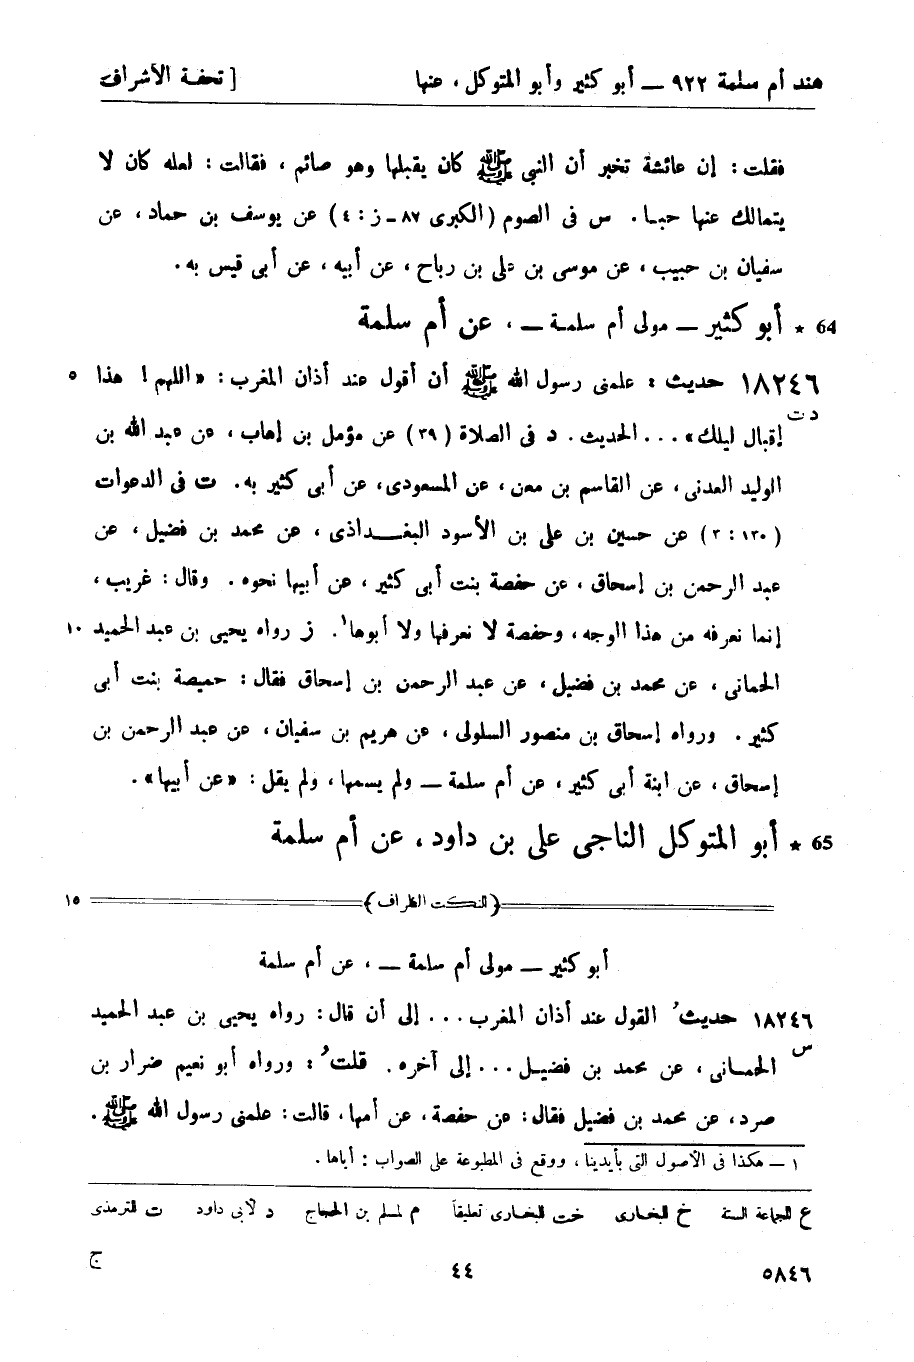 هند أم سلمة ٩٢٢ — أبو كثير وأبو المتوكل ، عنها [ تحفة الأشراف
فقلت : إن عائشة تخبر أن النبي ﷺ كان يقبلها وهو صائم ، فقالت : لعله كان لا
يتمالك عنها حبا . س فى الصوم (الكبرى ٨٧ - ز : ٤) عن يوسف بن حماد ، عن
سفيان بن حبيب ، عن موسى بن على بن رباح ، عن أبيه ، عن أبى قيس به .
64 * أبو كثير — مولى أم سلمة — ، عن أم سلمة
١٨٢٤٦ حديث : علمنى رسول الله ﷺ أن أقول عند أذان المغرب : «اللهم ! هذا ٥
د ت
إقبال ليلك» . . . الحديث . د فى الصلاة (٣٩) عن مؤمل بن إهاب ، عن عبد الله بن
الوليد العدنى ، عن القاسم بن معن ، عن المسعودى ، عن أبى كثير به . ت فى الدعوات
(١٣٠ : ٣) عن حسين بن على بن الأسود البغدادى ، عن محمد بن فضيل ، عن
عبد الرحمن بن إسحاق ، عن حفصة بنت أبى كثير ، عن أبيها نحوه . وقال : غريب ،
إنما نعرفه من هذا الوجه ، وحفصة لا نعرفها ولا أبوها١ . ز رواه يحيى بن عبد الحميد ١٠
الحمانى ، عن محمد بن فضيل ، عن عبد الرحمن بن إسحاق فقال : حميصة بنت أبى
كثير . ورواه إسحاق بن منصور السلولى ، عن هريم بن سفيان ، عن عبد الرحمن بن
إسحاق ، عن ابنة أبى كثير ، عن أم سلمة — ولم يسمها ، ولم يقل : «عن أبيها» .
65 * أبو المتوكل الناجى على بن داود ، عن أم سلمة
(النكت الظراف) ١٥
أبو كثير — مولى أم سلمة — ، عن أم سلمة
١٨٢٤٦ حديثُ القول عند أذان المغرب . . . إلى أن قال : رواه يحيى بن عبد الحميد
س
الحمانى ، عن محمد بن فضيل . . . إلى آخره . قلتُ : ورواه أبو نعيم ضرار بن
صرد ، عن محمد بن فضيل فقال : عن حفصة ، عن أمها ، قالت : علمنى رسول الله ﷺ .
١ — هكذا فى الأصول التى بأيدينا ، ووقع فى المطبوعة على الصواب : أباها .
ع للجماعة الستة خ للبخارى خت للبخارى تعليقاً م لمسلم بن الحجاج د لأبى داود ت للترمذى
٥٨٤٦ ٤٤ ج